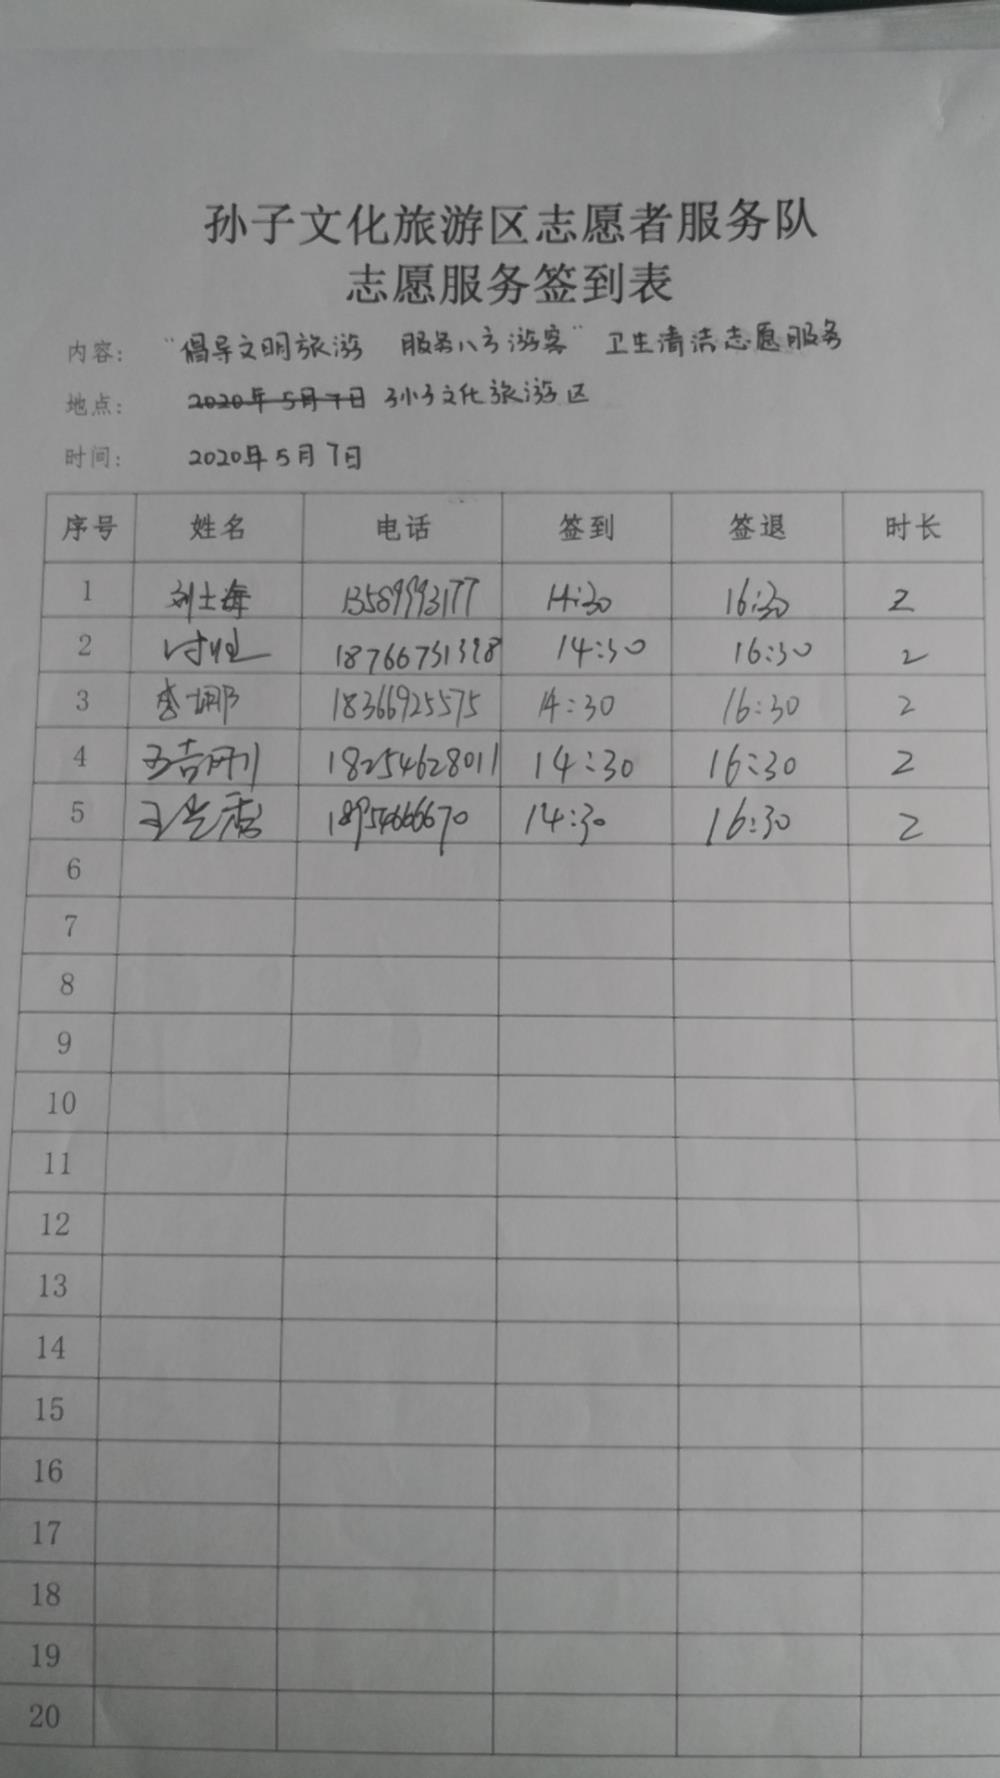 孙子文化旅游区志愿者服务队
志愿服务签到表
内容： “倡导文明旅游 服务八方游客” 卫生清洁志愿服务
地点： 2020年5月7日 孙子文化旅游区
时间： 2020年5月7日
序号 姓名 电话 签到 签退 时长
1 刘士海 13589993177 14:30 16:30 2
2 14:30 16:30 2
3 李娜 18366925575 14:30 16:30 2
4 18254628011 14:30 16:30 2
5 18954666670 14:30 16:30 2
6
7
8
9
10
11
12
13
14
15
16
17
18
19
20